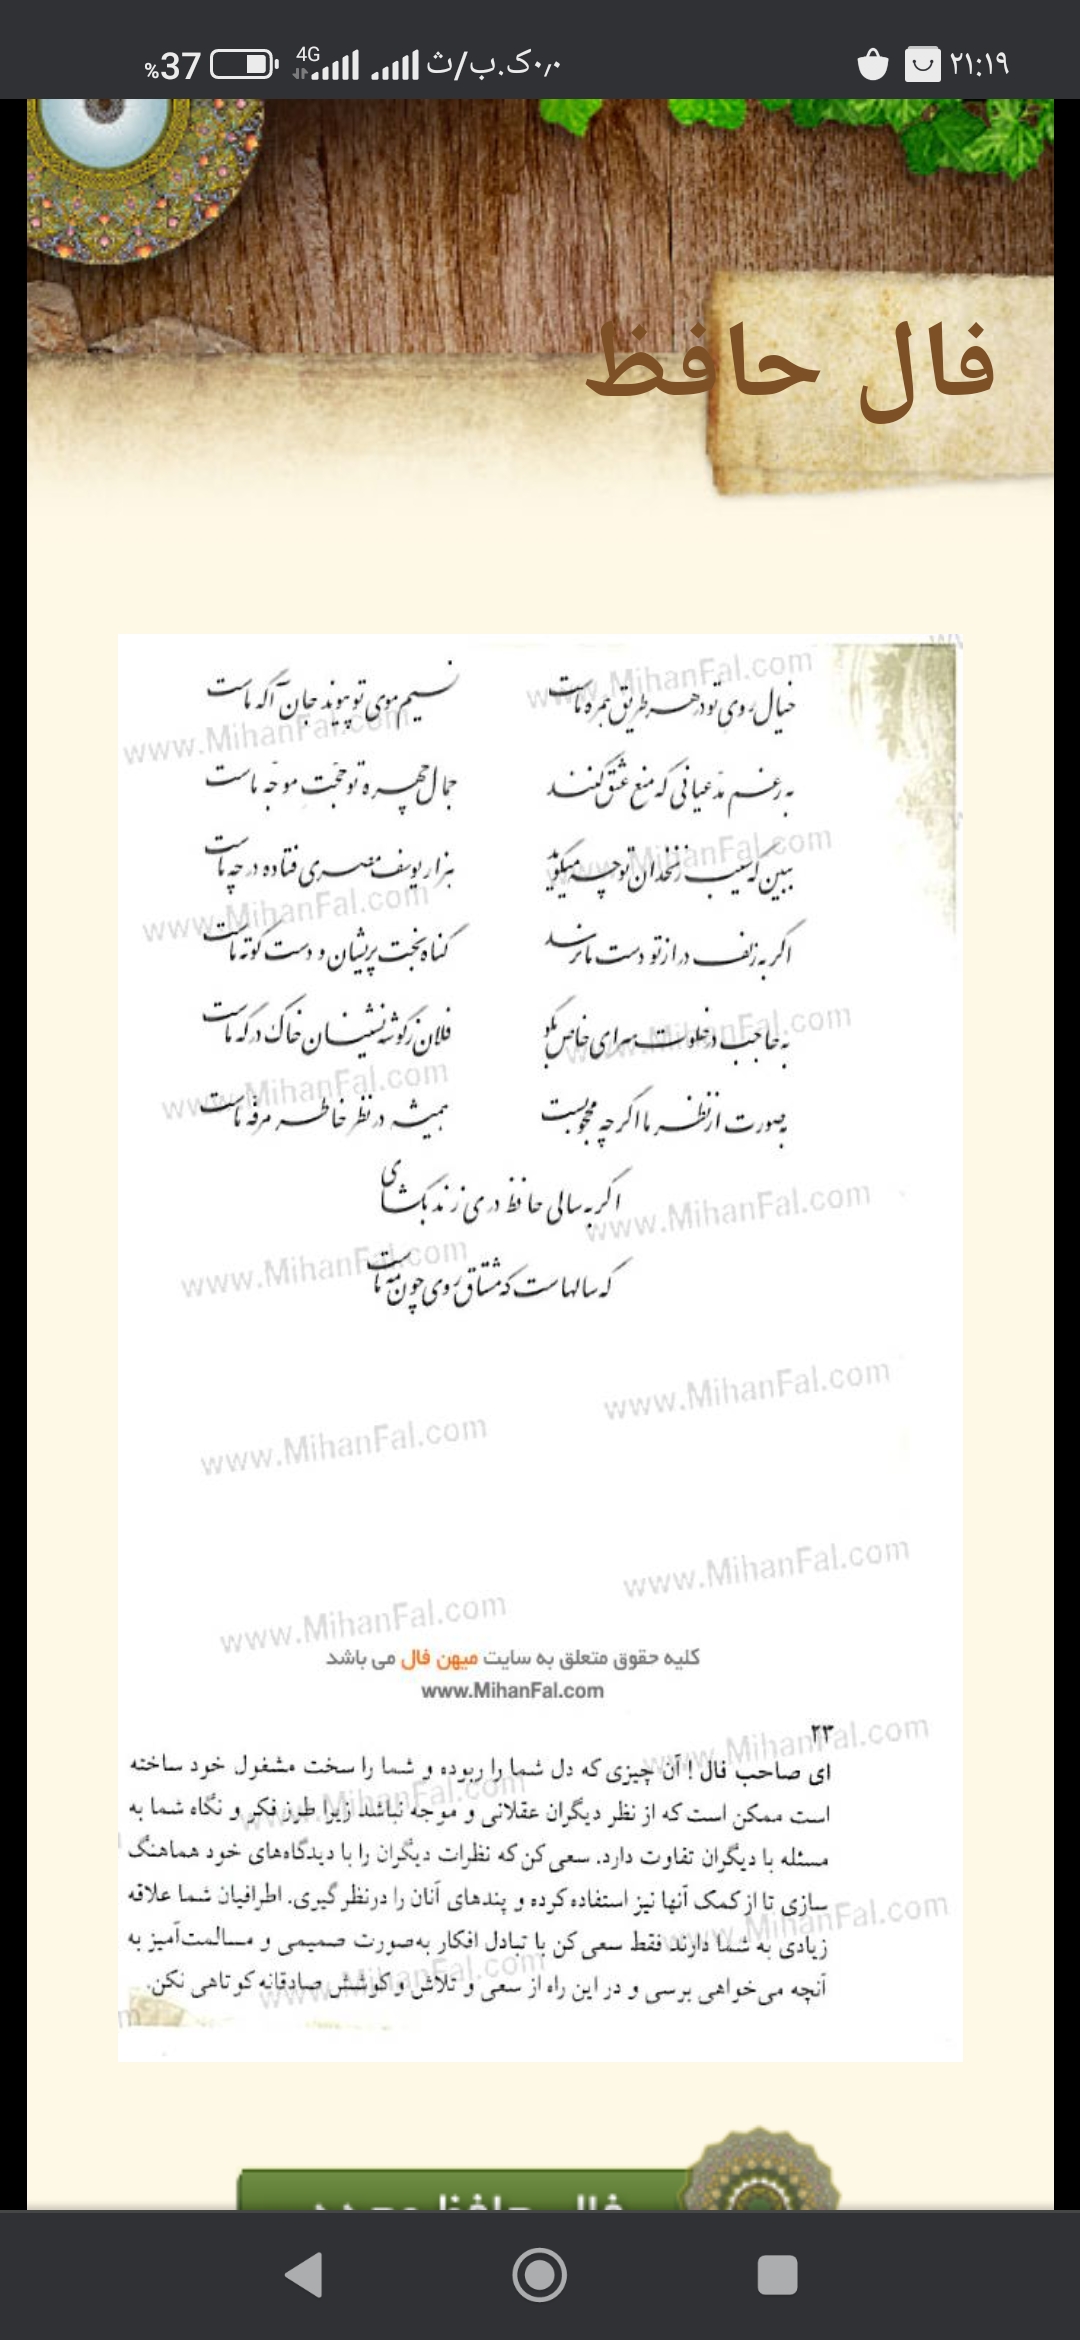 %37 4G ۰٫۰ک.ب/ث ۲۱:۱۹
فال حافظ
خیال روی تو در هر طریق همره ماست نسیم موی تو پیوند جان آگه ماست
به رغم مدعیانی که منع عشق کنند جمال چهره تو حجت موجّه ماست
ببین که سیب زنخدان تو چه میگوید هزار یوسف مصری فتاده در چه ماست
اگر به زلف دراز تو دست ما نرسد گناه بخت پریشان و دست کوته ماست
به حاجب در خلوت سرای خاص بگو فلان ز گوشه نشینان خاک درگه ماست
به صورت از نظر ما اگر چه محجوبست همیشه در نظر خاطر مرفه ماست
اگر به سالی حافظ دری زند بگشای
که سالهاست که مشتاق روی چون مه ماست
کلیه حقوق متعلق به سایت میهن فال می باشد
www.MihanFal.com
۲۳
ای صاحب فال! آن چیزی که دل شما را ربوده و شما را سخت مشغول خود ساخته
است ممکن است که از نظر دیگران عقلانی و موجه نباشد زیرا طرز فکر و نگاه شما به
مسئله با دیگران تفاوت دارد. سعی کن که نظرات دیگران را با دیدگاه‌های خود هماهنگ
سازی تا از کمک آنها نیز استفاده کرده و پندهای آنان را درنظر گیری. اطرافیان شما علاقه
زیادی به شما دارند فقط سعی کن با تبادل افکار به‌صورت صمیمی و مسالمت‌آمیز به
آنچه می‌خواهی برسی و در این راه از سعی و تلاش و کوشش صادقانه کوتاهی نکن.